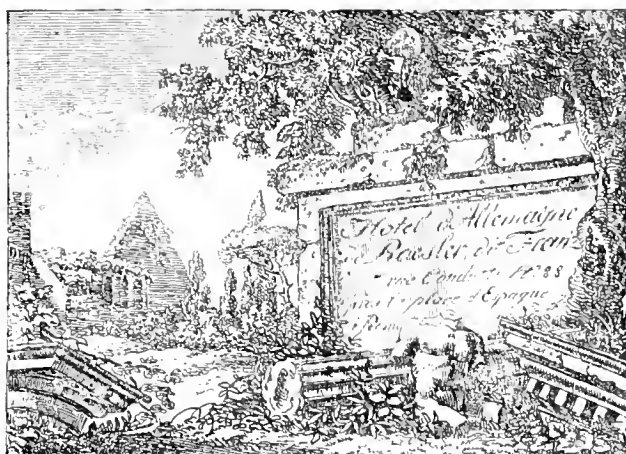 Hotel d'Allemaigne
Roesler, dit Franz
rue Condotti N° 88
place d'Espagne
Rome